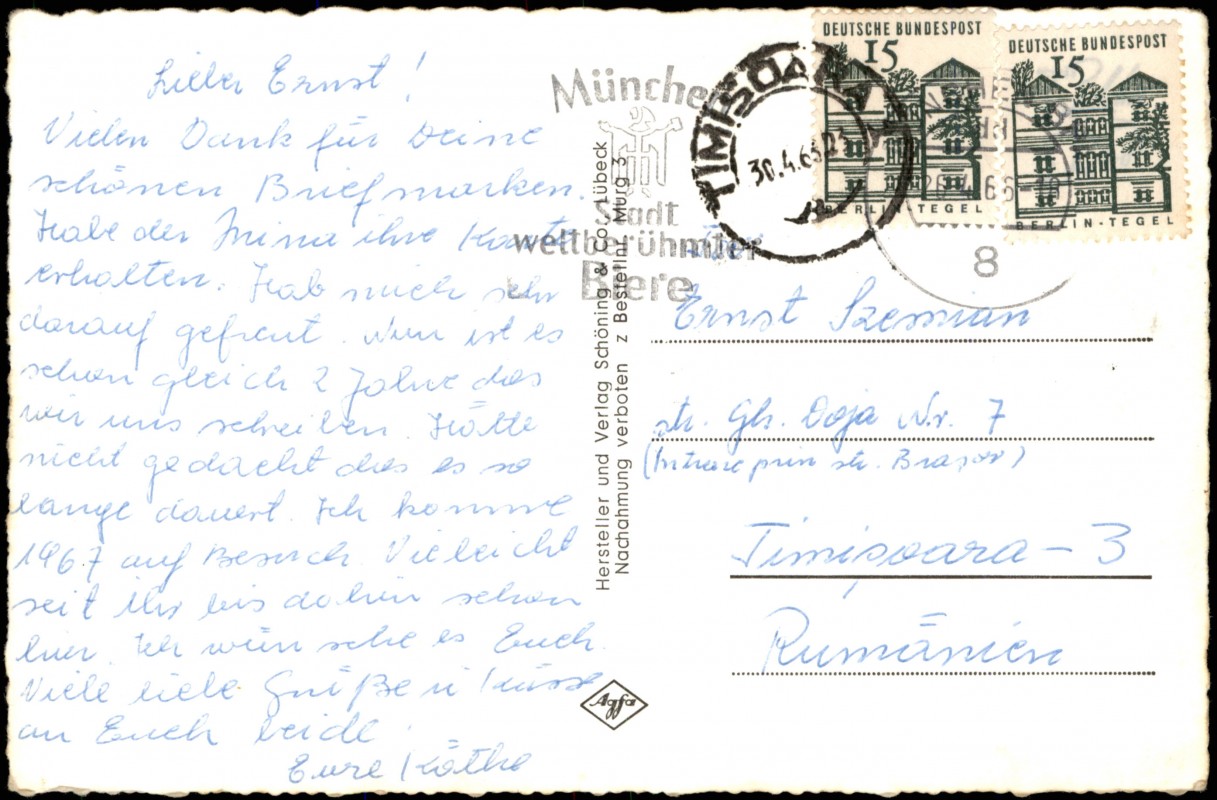 Lieber Ernst!
Vielen Dank für Deine
schönen Briefmarken.
Habe der Mina ihre Karte
erhalten. Hab mich sehr
darauf gefreut. Nun ist es
schon gleich 2 Jahre das
wir uns schreiben. Hätte
nicht gedacht das es so
lange dauert. Ich komme
1967 auf Besuch. Vieleicht
seit ihr bis dahin schon
hier. Ich wünsche es Euch.
Viele liebe Grüße u Küsse
an Euch beide.
Eure Käthe
Hersteller und Verlag Schöning & Co., Lübeck
Nachahmung verboten z Bestellnr. Murg 3
Agfa
München
Stadt
weltberühmter
Biere
TIMISOARA
30.4.65
8
DEUTSCHE BUNDESPOST
15
BERLIN-TEGEL
DEUTSCHE BUNDESPOST
15
BERLIN-TEGEL
Ernst Szemian
str. Gh. Doja Nr. 7
(Intrare prin str. Brașov)
Timișoara - 3
Rumänien